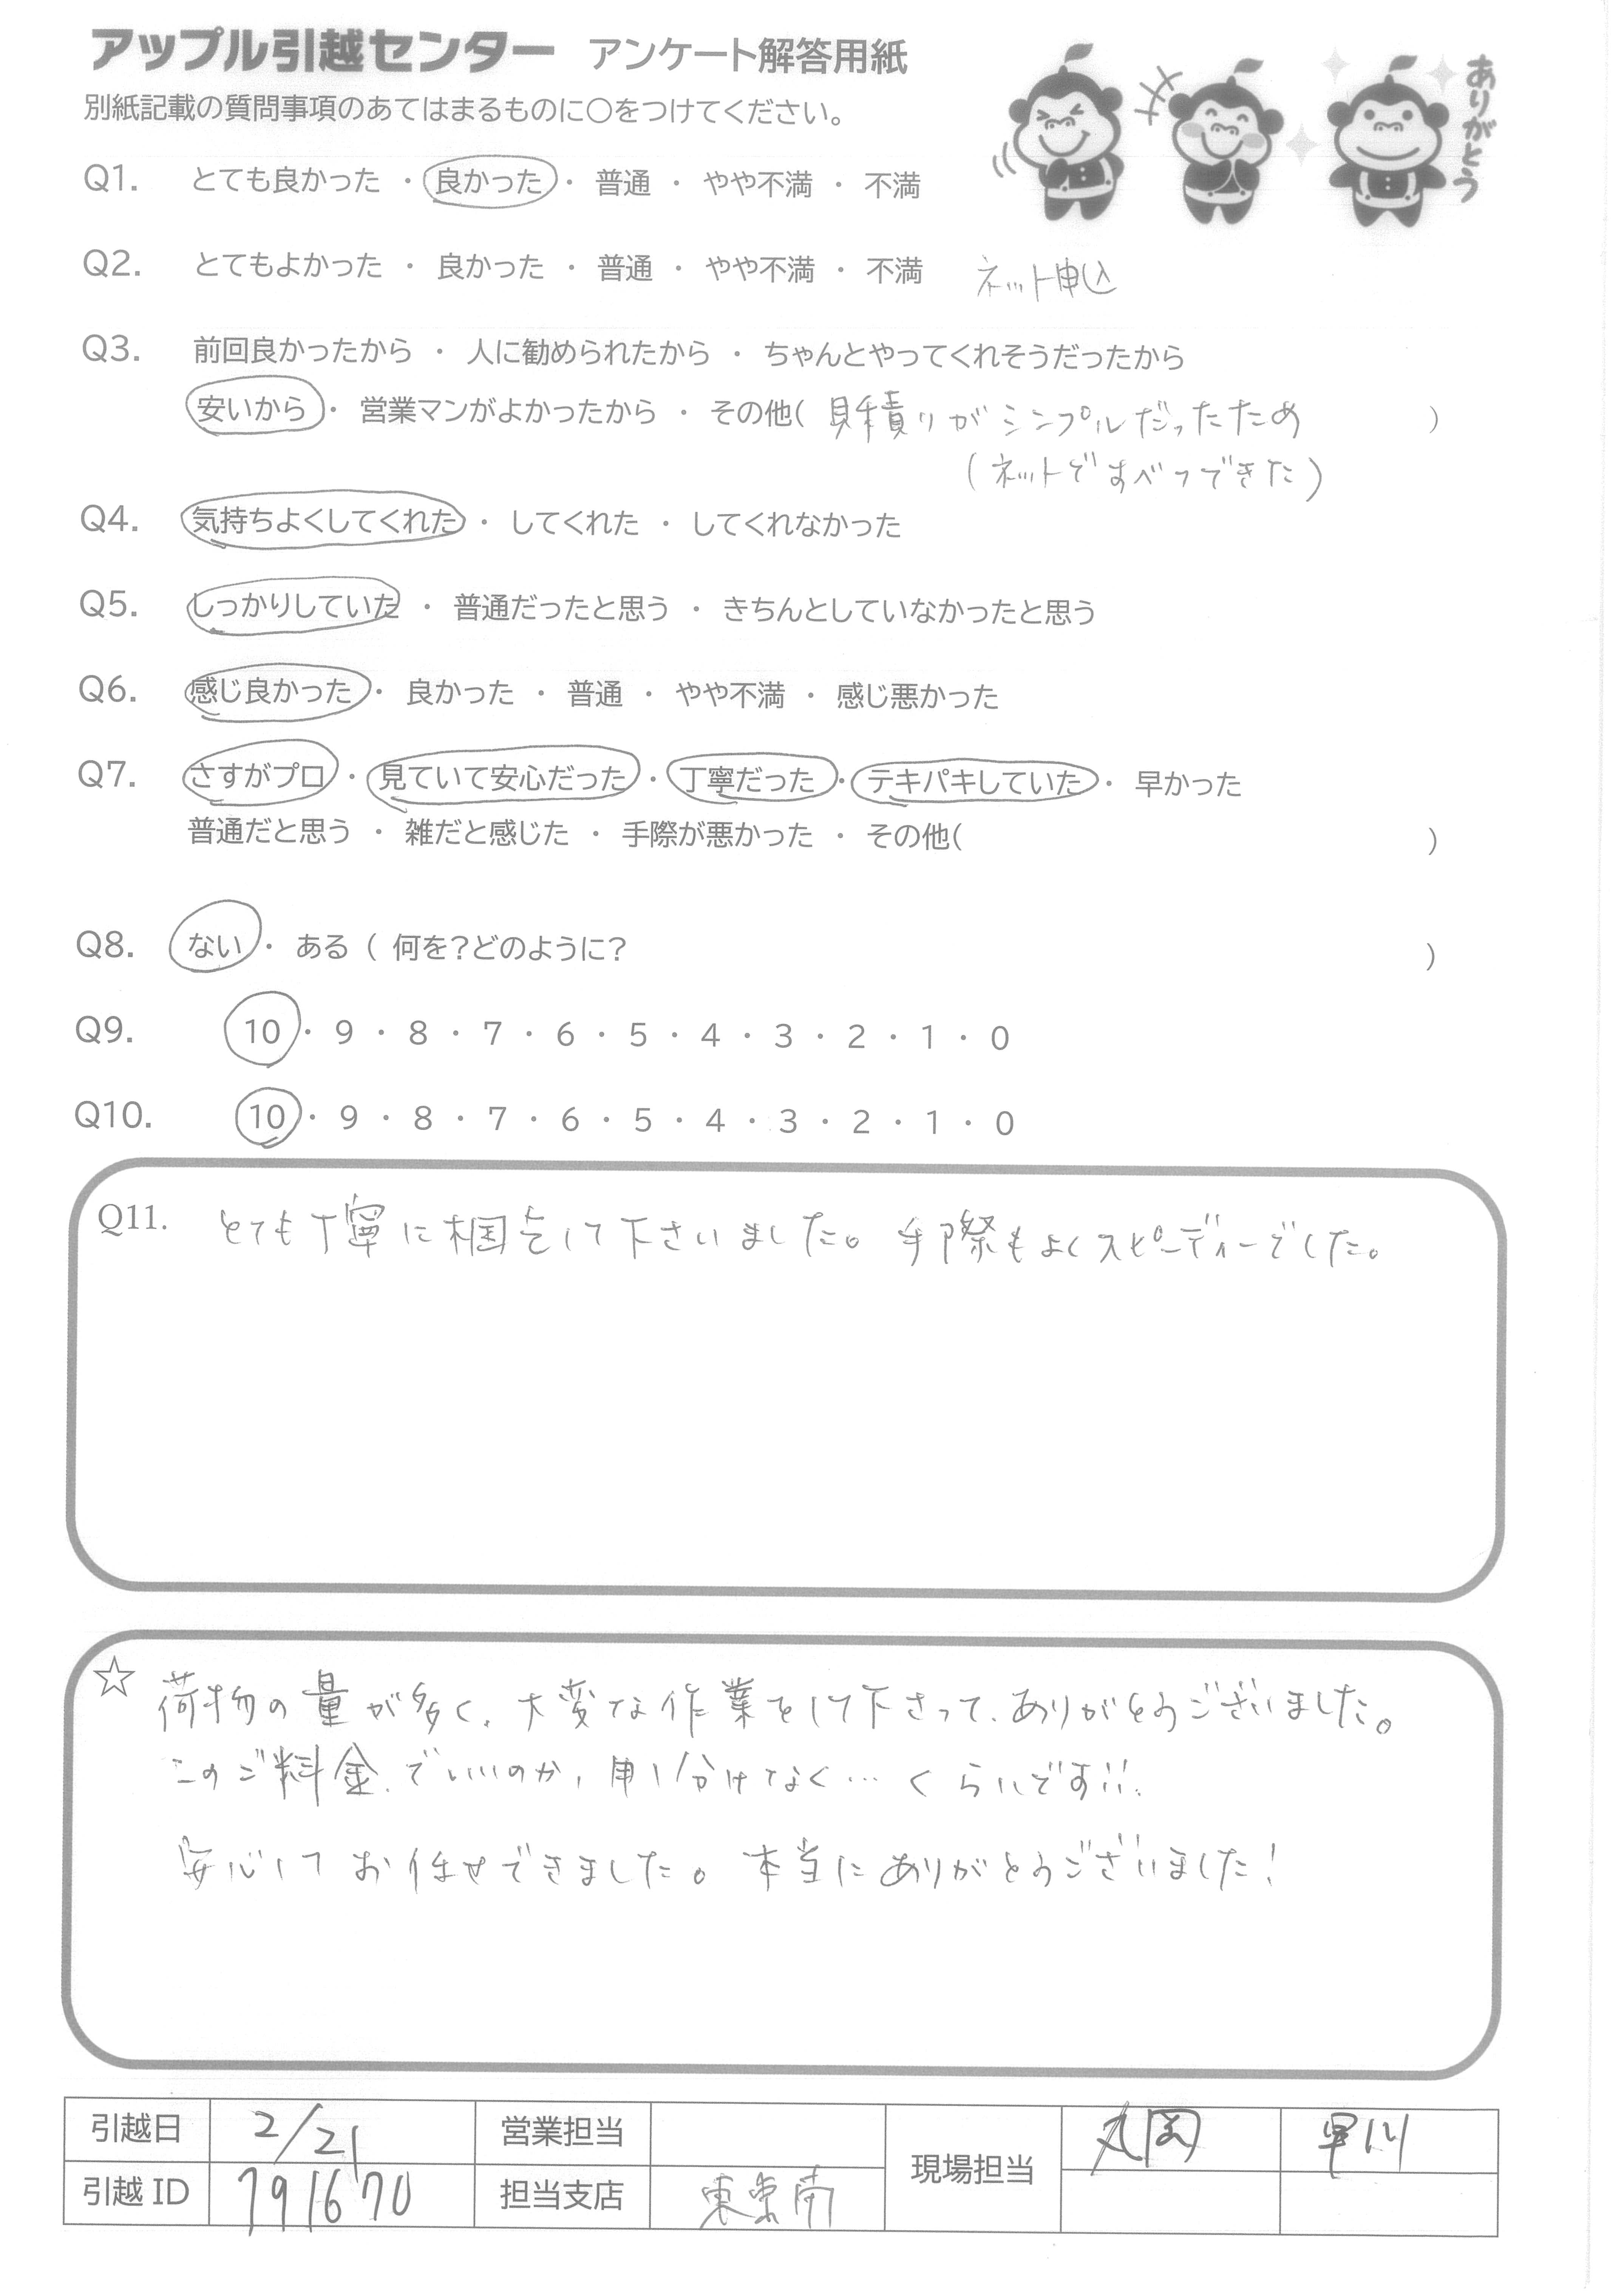 アップル引越センター アンケート解答用紙
別紙記載の質問事項のあてはまるものに〇をつけてください。
ありがとう
Q1. とても良かった ・ 良かった ・ 普通 ・ やや不満 ・ 不満
Q2. とてもよかった ・ 良かった ・ 普通 ・ やや不満 ・ 不満 ネット申込
Q3. 前回良かったから ・ 人に勧められたから ・ ちゃんとやってくれそうだったから
安いから ・ 営業マンがよかったから ・ その他( 見積りがシンプルだったため )
(ネットですべてできた)
Q4. 気持ちよくしてくれた ・ してくれた ・ してくれなかった
Q5. しっかりしていた ・ 普通だったと思う ・ きちんとしていなかったと思う
Q6. 感じ良かった ・ 良かった ・ 普通 ・ やや不満 ・ 感じ悪かった
Q7. さすがプロ ・ 見ていて安心だった ・ 丁寧だった ・ テキパキしていた ・ 早かった
普通だと思う ・ 雑だと感じた ・ 手際が悪かった ・ その他( )
Q8. ない ・ ある ( 何を?どのように? )
Q9. 10 ・ 9 ・ 8 ・ 7 ・ 6 ・ 5 ・ 4 ・ 3 ・ 2 ・ 1 ・ 0
Q10. 10 ・ 9 ・ 8 ・ 7 ・ 6 ・ 5 ・ 4 ・ 3 ・ 2 ・ 1 ・ 0
Q11. とても丁寧に梱包して下さいました。手際もよくスピーディーでした。
☆ 荷物の量が多く、大変な作業をして下さって、ありがとうございました。
このご料金でいいのか、申し分けなく… くらいです!!
安心してお任せできました。本当にありがとうございました!
引越日 2/21 営業担当 現場担当 丸岡 早川
引越ID 791670 担当支店 東京南